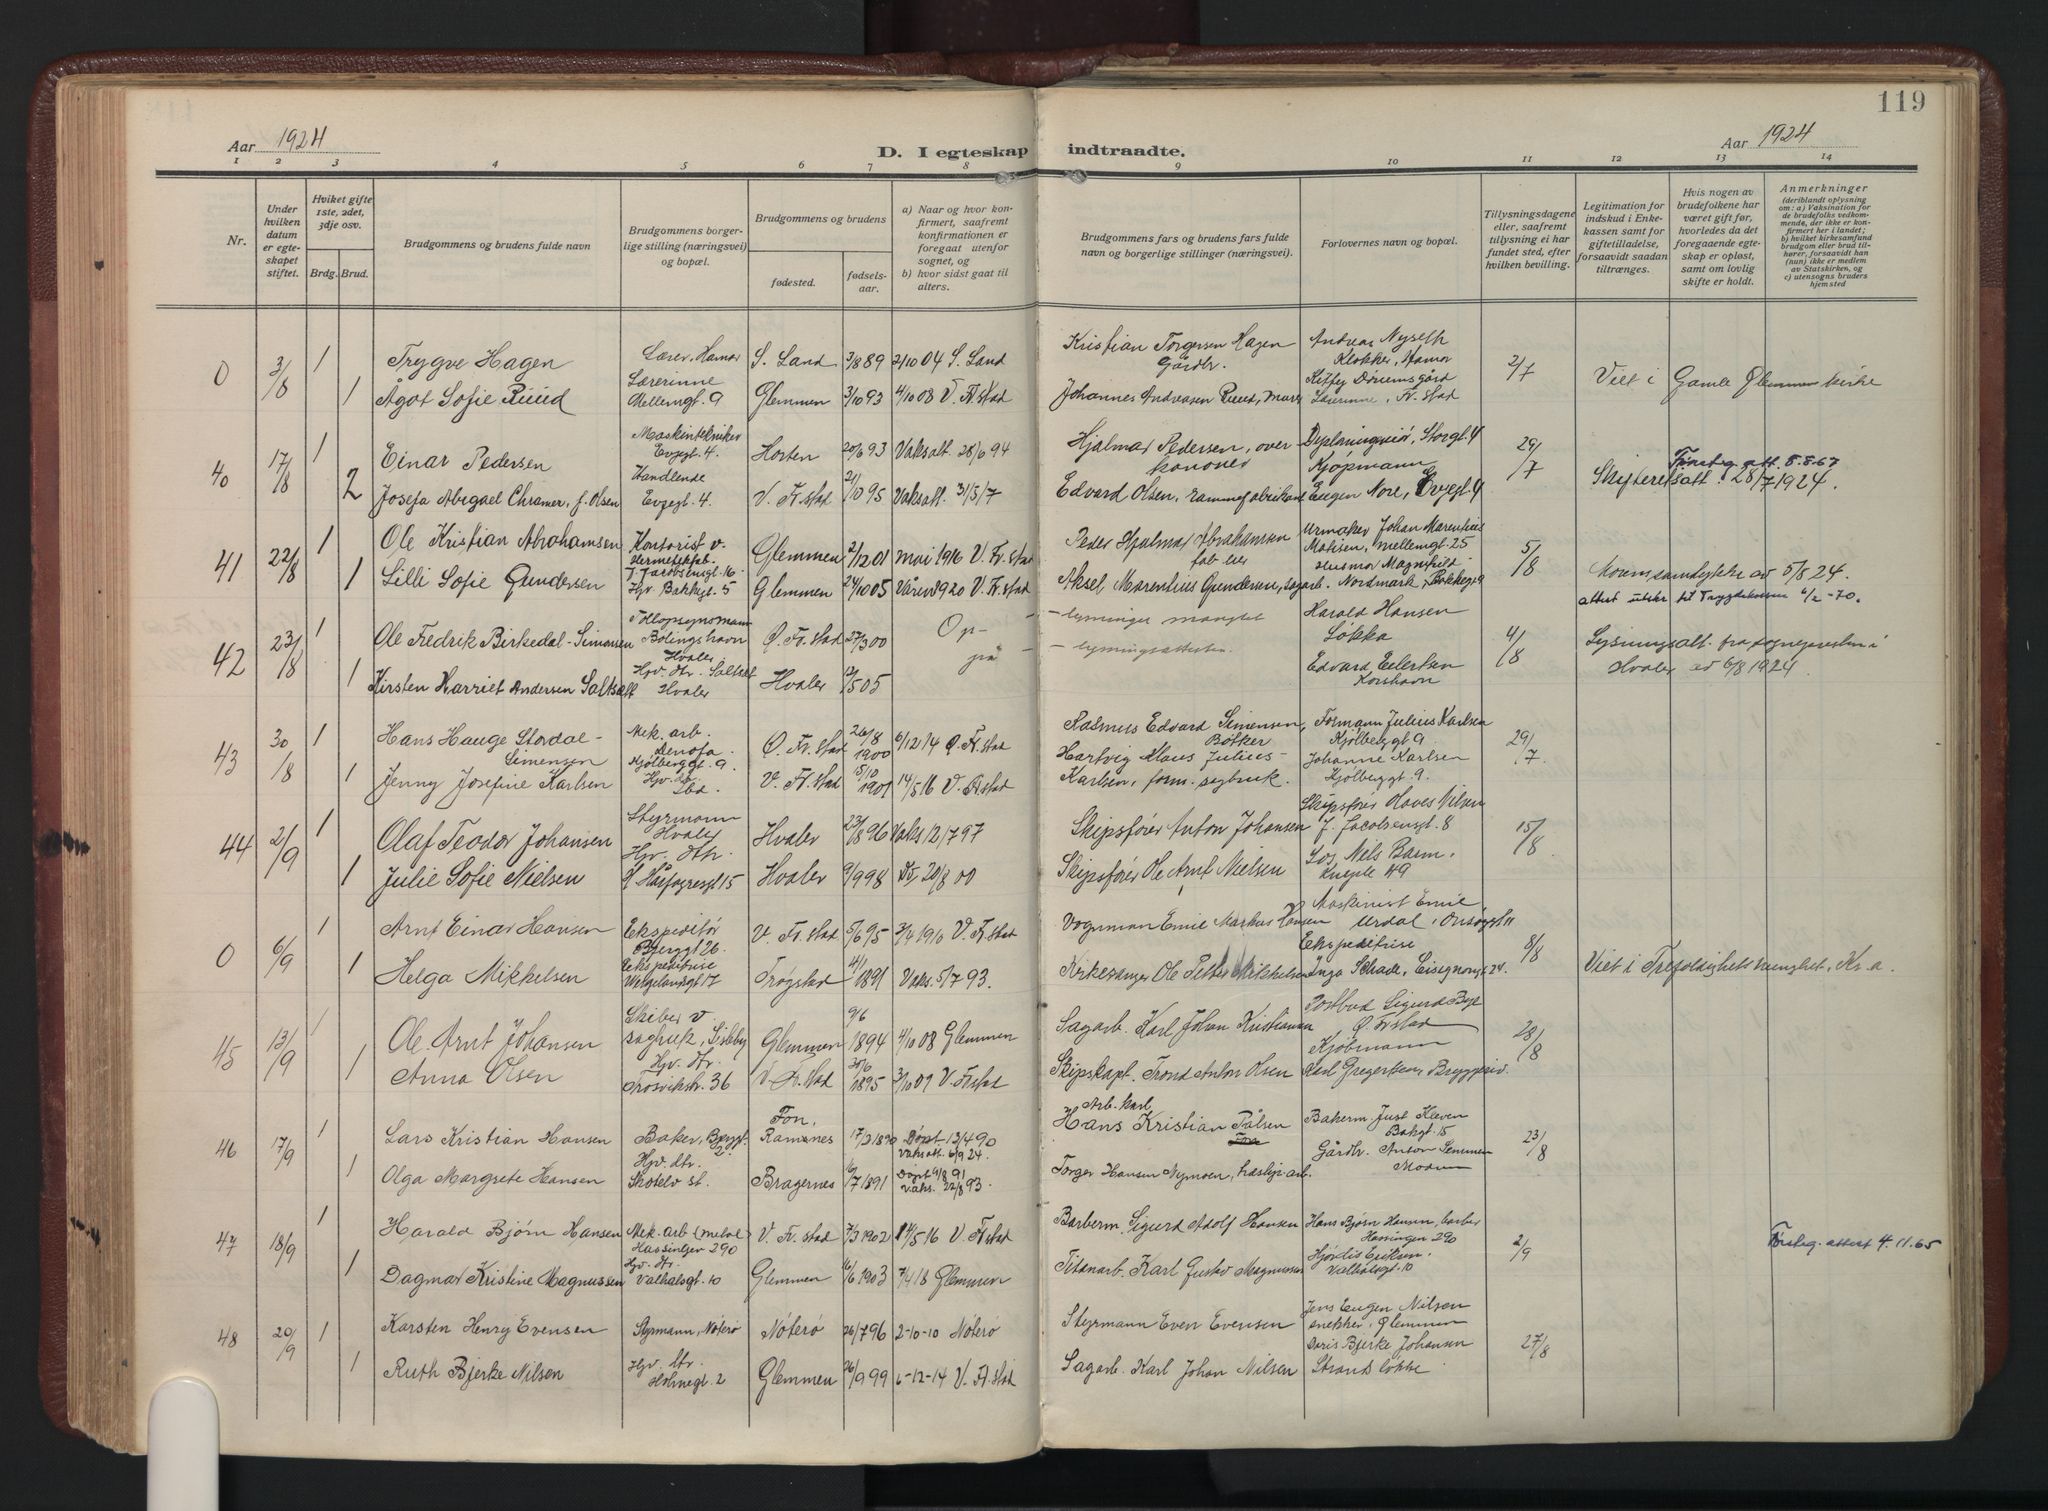 119
Aar 1924
D. I egteskap indtraadte.
Aar 1924
1 2 3 4 5 6 7 8 9 10 11 12 13 14
Nr.
Under hvilken datum er egteskapet stiftet.
Hviket gifte 1ste, 2det, 3dje osv.
Brdg. Brud.
Brudgommens og brudens fulde navn
Brudgommens borgerlige stilling (næringsvei) og bopæl.
Brudgommens og brudens
fødested.
fødselsaar.
a) Naar og hvor konfirmert, saafremt konfirmationen er foregaat utenfor sognet, og
b) hvor sidst gaat til alters.
Brudgommens fars og brudens fars fulde navn og borgerlige stillinger (næringsvei).
Forlovernes navn og bopæl.
Tillysningsdagene eller, saafremt tillysning ei har fundet sted, efter hvilken bevilling.
Legitimation for indskud i Enkekassen samt for giftetilladelse, forsaavidt saadan tiltrænges.
Hvis nogen av brudefolkene har været gift før, hvorledes da det foregaaende egteskap er opløst, samt om lovlig skifte er holdt.
Anmerkninger (deriblandt oplysning om: a) Vaksination for de brudefolks vedkommende, der ikke er konfirmert her i landet; b) hvilket kirkesamfund brudgom eller brud tilhører, forsaavidt han (hun) ikke er medlem av Statskirken, og c) utensogns bruders hjemsted
0 3/8 1 Trygve Hagen Lærer, Hamar S. Land 3/8 89 2/10 04 S. Land Kristian Torgersen Hagen Gårdbr. Andreas Nyseth Klokker, Hamar 2/7 Viet i Gamle Glemmen kirke
1 Ågot Sofie Ruud Lærerinne Mellemgt. 9 Glemmen 3/10 93 4/10 08 V. Fr.stad Johannes Andreasen Ruud, murer Lærerinne, Fr.stad
40 17/8 1 Einar Pedersen Maskintekniker Evjegt. 4. Horten 20/6 93 Vaksatt 28/6 94 Hjalmar Pedersen, over kanoner Storgt. 4 29/7 Skifteretsatt. 28/7 1924. Førsteg. att. 8.8.67
2 Josefa Abigael Chramer, f. Olsen Handlende Evjegt. 4. V. Fr.stad 21/10 95 Vaksatt. 31/5/7 Edvard Olsen, rammefabrikant Kjøpmann Eugen Nore, Evjegt. 4
41 22/8 1 Ole Kristian Abrahamsen Kontorist v. Hermetikfab. J. Jacobsensgt. 16 Glemmen 2/12 01 mai 1916 V. Fr.stad Peder Hjalmar Abrahamsen fab. eier Urmaker Johan Marentius Matisen, Mellemgt. 25 5/8 Morens samtykke av 5/8 24.
1 Lilli Sofie Gundersen Hjv Bakkegt. 5 Glemmen 24/10 05 Våren 1920 V. Fr.stad Aksel Marentius Gundersen, sagarb. Husmor Magnhild Nordmark, Bakkegt 9 attest utskr. til Trygdekassen 6/2 -70.
42 23/8 1 Ole Fredrik Birkedal-Simonsen Tollopsynsmann Hvaler Ø. Fr.stad 27/3 00 Op- lysninger manglet Harald Hansen Løkka 4/8 Lysningsatt. fra sognepresten i Hvaler av 6/8 1924
1 Kirsten Harriet Andersen Saltsalt Hjv. dtr. Saltsalt Hvaler Hvaler 12/5 05 på - lysningsattesten. Edvard Eilertsen Korshavn
43 30/8 1 Hans Hauge Stordal-Simensen Mek. arb. Denofa. Kjølberggt. 9. Ø. Fr.stad 26/8 1900 6/12 14 Ø. Fr.stad Rasmus Edvard Simensen, Bøtker Formann Julius Karlsen Kjølberggt 9. 29/7.
1 Jenny Josefine Karlsen Hjv. dtr. Ibd. V. Fr.stad 15/10 1901 14/5 16 V. Fr.stad Hartvig Klaus Julius Karlsen, form. sagbruk. Johanne Karlsen Kjølberggt. 9.
44 2/9 1 Olaf Teodor Johansen Styrmann Hvaler Hvaler 23/8 96 Vaks 12/7 97 Skipsfører Anton Johansen Skipsfører Nilsen J. Jacobsensgt. 8 15/8
1 Julie Sofie Nielsen Hjv. dtr. H. Hårfagresgt 15 Hvaler 9/9 98 Do/ 20/8 00 Skipsfører Ole Arnt Nielsen Los Nils Barm,
0 6/9 1 Arnt Einar Hansen Ekspeditør Bjerggt 26. V. Fr.stad 5/6 95 3/4 1910 V. Fr.stad Vognman Emil Markus Hansen Maskinist Emil Urdal, Onsøgt 11 8/8 Viet i Trefoldighets menghet, Kr.a.
1 Helga Mikkelsen Ekspeditrise Welgelandsgt 17 Trøgstad 4/1 1891 Vaks. 5/7 93. Kirkesanger Ole Petter Mikkelsen Ekspeditrise Inga Schade, 24.
45 13/9 1 Ole Arnt Johansen Skiber v. sagbruk, Lisleby Glemmen 9/6 1894 4/10 08 Glemmen Sagarb. Karl Johan Kristiansen Postbud Sigurd Bye, Ø. Fr.stad 28/8
1 Anna Olsen Hjv. dtr. Trosvikstr. 36 V. Fr.stad 30/6 1895 3/10 09 V. Fr.stad Skipskapt. Trond Anton Olsen Kjøbmann Karl Gregersen, Bryggeriv.
46 17/9 1 Lars Kristian Hansen Baker, Bjerggt. 2. Fon, Ramnes 17/3 1890 Døpt 13/4 90 Vaksatt 6/9 24. Arb.karl Hans Kristian Pålsen Fon Bakerm. Just Kleven Bakgt. 15 23/8
1 Olga Margrete Hansen Hjv. dtr. Skotelv st. Bragernes 16/7 1891 Døpt 9/8 91 Vaks. 22/8 93. Torger Hansen Nymoen, træslip.arb. Gårdbr. Anton Semmen Modum
47 18/9 1 Harald Bjørn Hansen Mek. arb (metal) Hassingen 290 V. Fr.stad 7/3 1902 14/5 16 V. Fr.stad Barberm. Sigurd Adolf Hansen Hans Bjørn Hansen, barber Hassingen 290 2/9 Førsteg. attest 4.11.65
1 Dagmar Kristine Magnussen Hjv. dtr. Valhalsgt. 10 Glemmen 16/6 1903 7/4 18 Glemmen Titanarb. Karl Gustav Magnussen Hjørdis Eriksen, Valhalsgt. 10
48 20/9 1 Karsten Henry Evensen Styrmann, Nøterø Nøterø 26/7 96 2-10-10 Nøterø Styrmann Even Evensen Jens Eugen Nilsen snekker, Glemmen 27/8
1 Ruth Bjerke Nilsen Hjv. dtr. Holmegt. 2 Glemmen 26/9 99 6-12-14 V. Fr.stad Sagarb. Karl Johan Nilsen Doris Bjerke Johansen Strandsløkke